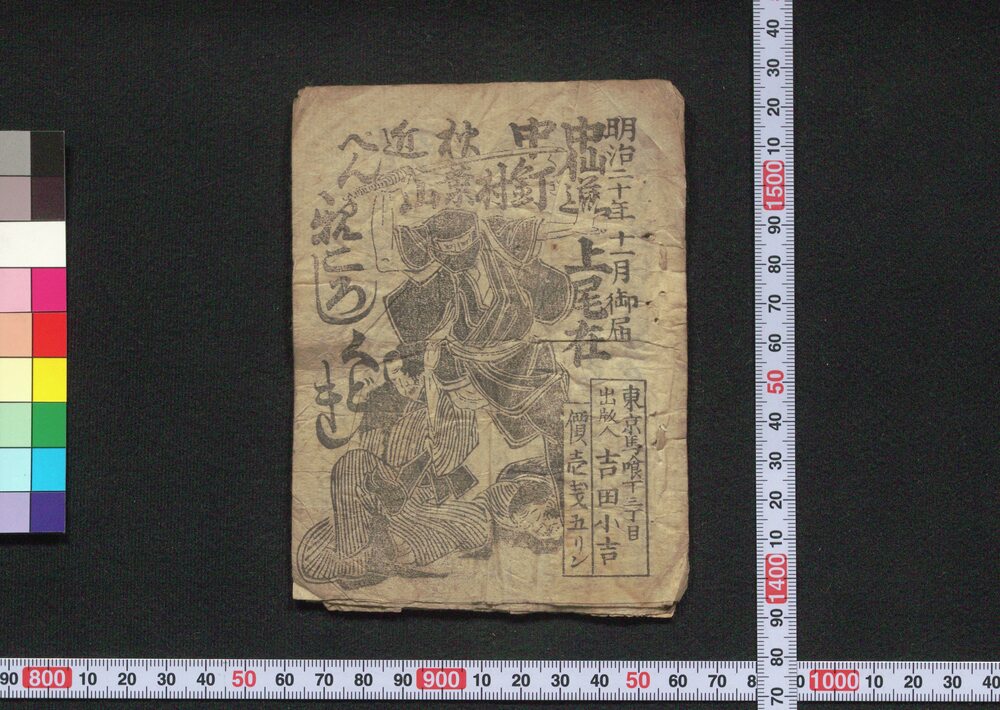 明治二十年十一月御届
中仙道上尾在
中釘村
秋葉山
近
べん
ころし
東京馬喰丁三丁目
出版人 吉田小吉
價壱戔五リン
90 800 10 20 30 40 50 60 70 80 900 10 20 30 40 50 60 70 8 0 1000 10 20 30 40
40 30 20 10 1500 90 80 70 60 50 40 30 20 10 1400 90 80 70